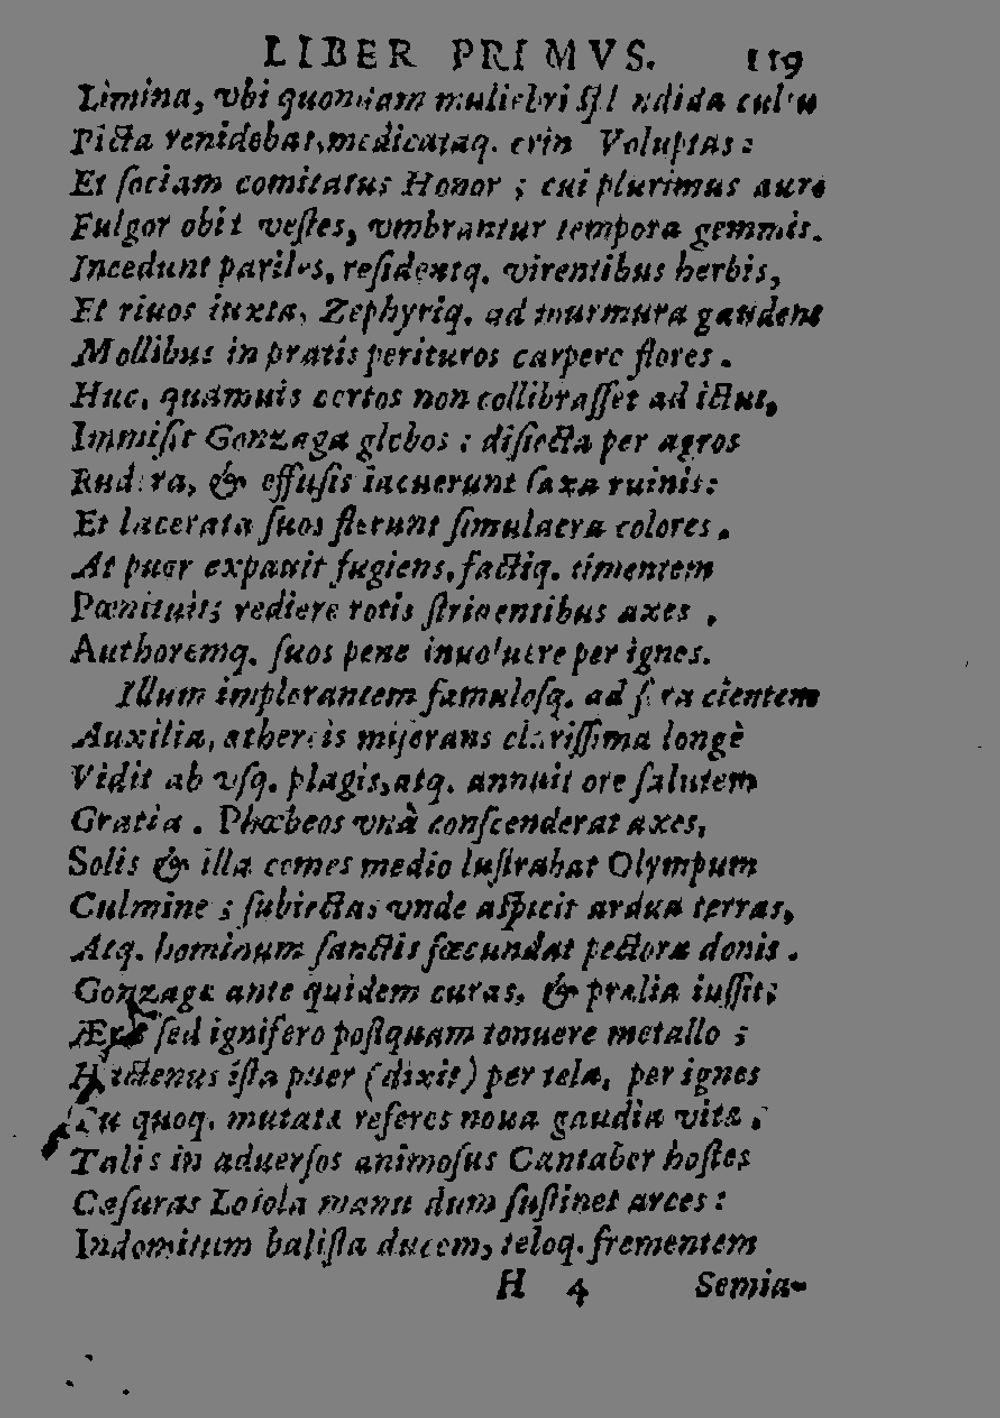 LIBER PRIMVS. 119
Limina, vbi quondam muliebri splendida cultu
Picta renidebat, medicataq. crin Voluptas:
Et sociam comitatus Honor; cui plurimus auro
Fulgor obit vestes, vmbrantur tempora gemmis.
Incedunt pariles, residentq. virentibus herbis,
Et riuos iuxta, Zephyriq. ad murmura gaudent
Mollibus in pratis perituros carpere flores.
Huc, quamuis certos non collibrasset ad ictus,
Immisit Gonzaga globos: disiecta per agros
Rudera, & effusis iacuerunt saxa ruinis:
Et lacerata suos flerunt simulacra colores.
At puer expauit fugiens, factiq. timentem
Pœnituit; rediere rotis stridentibus axes.
Authoremq. suos pene inuoluere per ignes.
Illum implorantem famulosq. ad sera cientem
Auxilia, athereis miserans clarissima longè
Vidit ab vsq. plagis, atq. annuit ore salutem
Gratia. Phœbeos vnà conscenderat axes,
Solis & illa comes medio lustrabat Olympum
Culmine; subiectas vnde aspicit ardua terras,
Atq. hominum sanctis fœcundat pectora donis.
Gonzaga ante quidem curas, & prælia iussit;
Ære sed ignifero postquam tonuere metallo;
Hactenus ista puer (dixit) per tela, per ignes
Tu quoq. mutata referes noua gaudia vita.
Talis in aduersos animosus Cantaber hostes
Cæsuras Loiola manu dum sustinet arces:
Indomitum balista ducem, teloq. frementem
H 4 Semia-